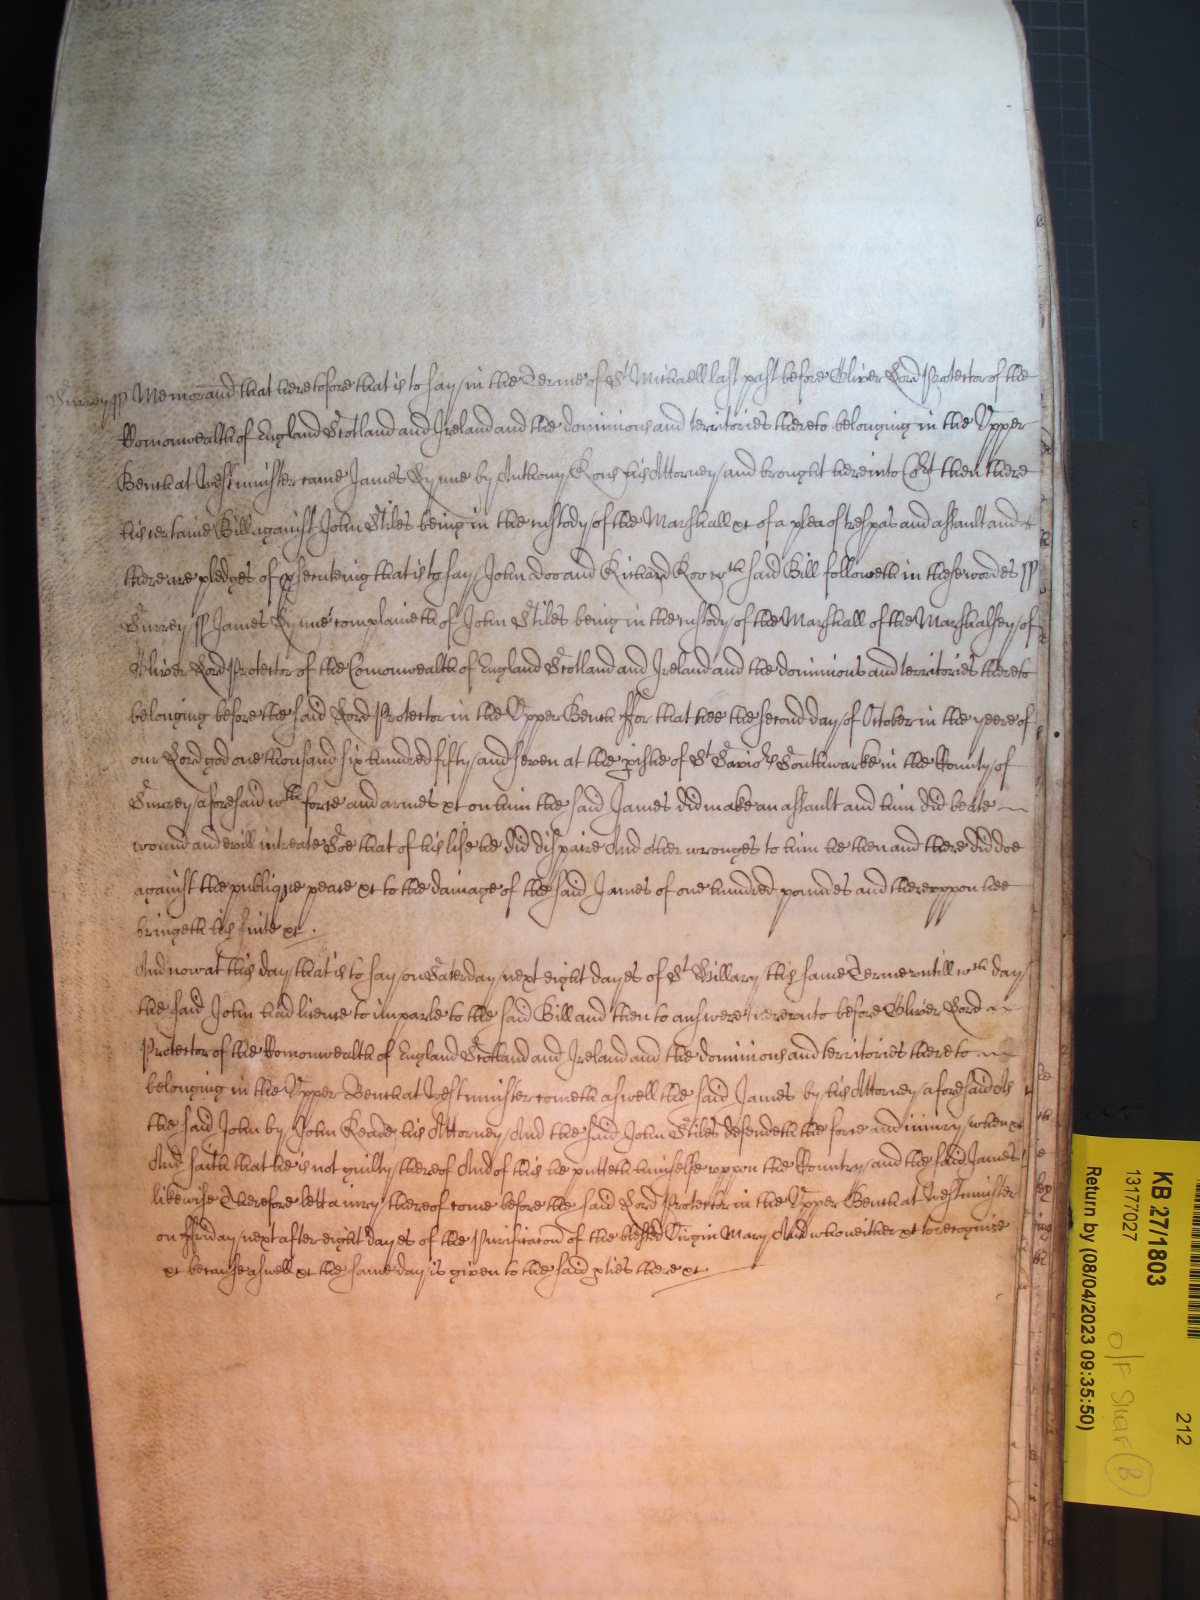 Surrey ss Memorand that heretofore that is to say in the Terme of St Michaell last past before Oliver Lord Protector of the
Comonwealth of England Scotland and Ireland and the dominions and territories thereto belonging in the Upper
Bench at Westminster came James Gynne by Anthony his Attorney and brought here into Cort then there
his certaine Bill against John Stiles being in the custody of the Marshall &c of a plea of trespas and assault and
there are pledges of psecuting that is to say John Doo and Richard Roo wch said Bill followeth in these wordes ss
Surrey ss James Gynne complaineth of John Stiles being in the custody of the Marshall of the Marshalsey of
Oliver Lord Protector of the Comonwealth of England Scotland and Ireland and the dominions and territories thereto
belonging before the said Lord Protector in the Upper Bench ffor that hee the second day of October in the yeere of
our Lord god one thousand six hundred fifty and seven at the pishe of St Savios Southwarke in the County of
Surrey aforesaid wth force and armes &c on him the said James did make an assault and him did beate
wound and evill intreate Soe that of his life he did dispaire And other wronges to him he then and there did doe
against the publique peace &c to the damage of the said James of one hundred poundes and thereuppon hee
bringeth his suite &c.
And now at this day that is to say on Saterday next eight dayes of St Hillary this same Terme untill wch day
the said John had licence to imparle to the said Bill and then to answere hereunto before Oliver Lord
Protector of the Comonwealth of England Scotland and Ireland and the dominions and territories thereto
belonging in the Upper Bench at Westminster cometh aswell the said James by his Attorney aforesaid As
the said John by John Reade his Attorney And the said John Stiles defendeth the force and iniury when &c
And saith that he is not guilty thereof And of this he putteth himselfe uppon the Country and the said James
likewise Therefore lett a iury thereof come before the said Lord Protector in the Upper Bench at Westminster
on ffriday next after eight dayes of the Purificacon of the blessed Virgin Mary And who neither &c to recognize
&c because aswell &c the same day is given to the said pties there &c.
KB 27/1803
212
13177027
Return by (08/04/2023 09:35:50)
O/F
B